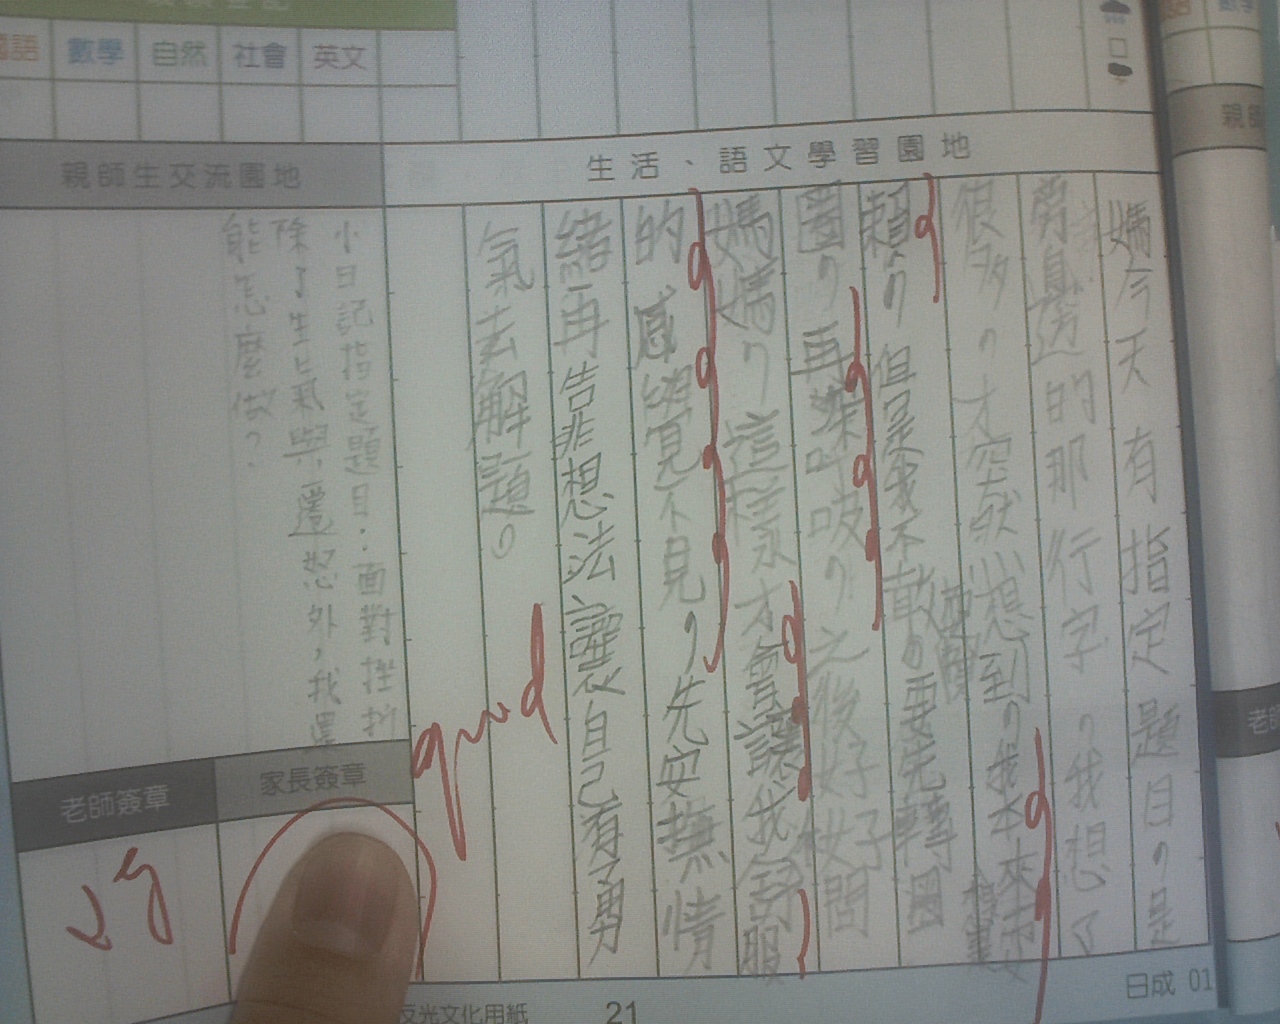 數學
自然
社會
英文
生活、語文學習園地
媽今天有指定題目,是
旁邊的那行字,我想了
很多,才突然想到,我本來要
賴,但是我不敢,要先轉圈
圈,再深呼吸,之後好好問
媽媽,這樣才會讓我舒服
的感覺不見,先安撫情
緒再告訴想法讓自己有勇
氣去解題。
親師生交流園地
小日記指定題目:面對挫折
除了生氣與遷怒外,我還
能怎麼做?
good
老師簽章
家長簽章
反光文化用紙
21
日成 01